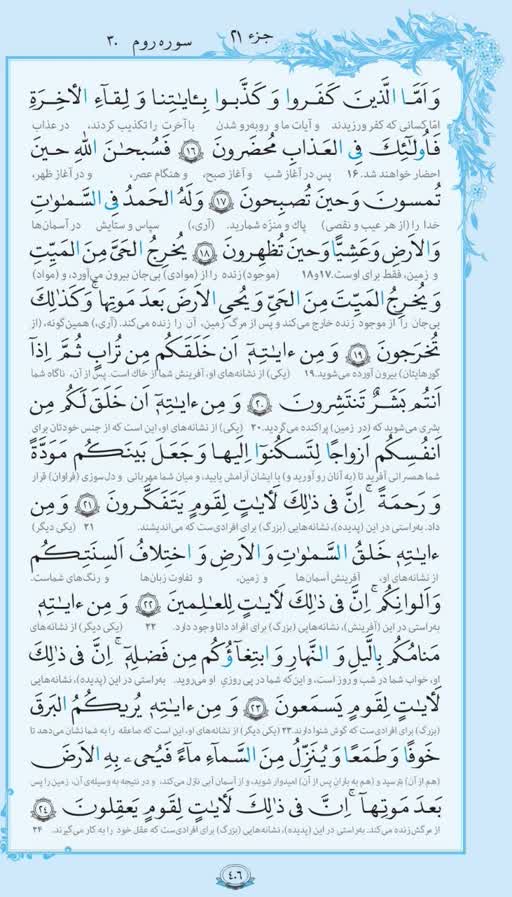 جزء ۲۱
سوره روم ۳۰
وَ اَمَّا الَّذینَ کَفَروا وَ کَذَّبوا بِـٔایاتِنا وَ لِقاءِ الآخِرَةِ
امّا کسانی که کفر ورزیدند و آیات ما و روبه‌رو شدن با آخرت را تکذیب کردند، در عذاب
فَاُولٰئِکَ فِی العَذابِ مُحضَرونَ ﴿۱۶﴾ فَسُبحانَ اللهِ حینَ
احضار خواهند شد. ۱۶ پس در آغاز شب و آغاز صبح، و هنگام عصر، و در آغاز ظهر،
تُمسونَ وَ حینَ تُصبِحونَ ﴿۱۷﴾ وَ لَهُ الحَمدُ فِی السَّماواتِ
خدا را (از هر عیب و نقصی) پاک و منزّه شمارید. (آری،) سپاس و ستایش در آسمان‌ها
وَ الاَرضِ وَ عَشِیًّا وَ حینَ تُظهِرونَ ﴿۱۸﴾ یُخرِجُ الحَیَّ مِنَ المَیِّتِ
و زمین، فقط برای اوست. ۱۷و۱۸ (موجود) زنده را از (موادی) بی‌جان بیرون می‌آورد، و (مواد)
وَ یُخرِجُ المَیِّتَ مِنَ الحَیِّ وَ یُحیِ الاَرضَ بَعدَ مَوتِها ۚ وَ کَذٰلِکَ
بی‌جان را از موجود زنده خارج می‌کند و پس از مرگ زمین، آن را زنده می‌کند. (آری،) همین‌گونه، (از
تُخرَجونَ ﴿۱۹﴾ وَ مِن ءایاتِهٖ اَن خَلَقَکُم مِن تُرابٍ ثُمَّ اِذا
گورهایتان) بیرون آورده می‌شوید. ۱۹ (یکی) از نشانه‌های او، آفرینش شما از خاک است. پس از آن، ناگاه شما
اَنتُم بَشَرٌ تَنتَشِرونَ ﴿۲۰﴾ وَ مِن ءایاتِهٖ اَن خَلَقَ لَکُم مِن
بشری می‌شوید که (در زمین) پراکنده می‌گردید. ۲۰ (یکی) از نشانه‌های او، این است که از جنس خودتان برای
اَنفُسِکُم اَزواجًا لِتَسکُنوا اِلَیها وَ جَعَلَ بَینَکُم مَوَدَّةً
شما همسرانی آفرید تا (به آنان رو آورید و) با ایشان آرامش یابید، و میان شما مهربانی و دل‌سوزی (فراوان) قرار
وَ رَحمَةً ۚ اِنَّ فی ذٰلِکَ لَآیاتٍ لِقَومٍ یَتَفَکَّرونَ ﴿۲۱﴾ وَ مِن
داد. به‌راستی در این (پدیده)، نشانه‌هایی (بزرگ) برای افرادی‌ست که می‌اندیشند. ۲۱ (یکی دیگر)
ءایاتِهٖ خَلقُ السَّماواتِ وَ الاَرضِ وَ اختِلافُ اَلسِنَتِکُم
از نشانه‌های او، آفرینش آسمان‌ها و زمین، و تفاوت زبان‌ها و رنگ‌های شماست.
وَ اَلوانِکُم ۚ اِنَّ فی ذٰلِکَ لَآیاتٍ لِلعالِمینَ ﴿۲۲﴾ وَ مِن ءایاتِهٖ
به‌راستی در این (آفرینش)، نشانه‌هایی (بزرگ) برای افراد دانا وجود دارد. ۲۲ (یکی دیگر) از نشانه‌های
مَنامُکُم بِالَّیلِ وَ النَّهارِ وَ ابتِغاؤُکُم مِن فَضلِهٖ ۚ اِنَّ فی ذٰلِکَ
او، خواب شما در شب و روز است، و این‌که شما در پی روزیِ او می‌روید. به‌راستی در این (پدیده)، نشانه‌هایی
لَآیاتٍ لِقَومٍ یَسمَعونَ ﴿۲۳﴾ وَ مِن ءایاتِهٖ یُریکُمُ البَرقَ
(بزرگ) برای افرادی‌ست که گوش شنوا دارند. ۲۳ (یکی دیگر) از نشانه‌های او، این است که صاعقه را به شما نشان می‌دهد تا
خَوفًا وَ طَمَعًا وَ یُنَزِّلُ مِنَ السَّماءِ ماءً فَیُحیی بِهِ الاَرضَ
(هم از آن) بترسید و (هم به باران پس از آن) امیدوار شوید، و از آسمان آبی نازل می‌کند، و در نتیجه به وسیله‌ی آن، زمین را پس
بَعدَ مَوتِها ۚ اِنَّ فی ذٰلِکَ لَآیاتٍ لِقَومٍ یَعقِلونَ ﴿۲۴﴾
از مرگش زنده می‌کند. به‌راستی در این (پدیده)، نشانه‌هایی (بزرگ) برای افرادی‌ست که عقل خود را به کار می‌گیرند. ۲۴
۴۰۶